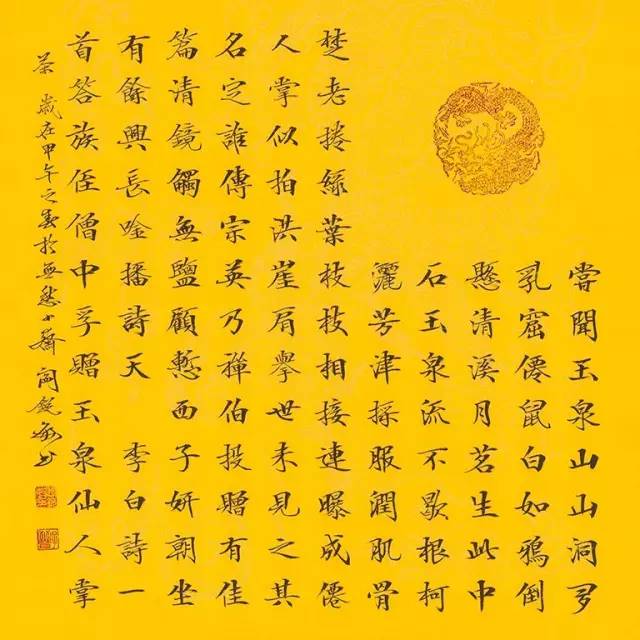 嘗聞玉泉山山洞多
乳窟僊鼠白如鴉倒
懸清溪月茗生此中
石玉泉流不歇根柯
灑芳津採服潤肌骨
楚老捲綠葉枝枝相接連曝成僊
人掌似拍洪崖肩舉世未見之其
名定誰傳宗英乃禪伯投贈有佳
篇清鏡觸無鹽顧慙西子妍朝坐
有餘興長唫播詩天 李白詩一
首答族侄僧中孚贈玉泉仙人掌
茶 歲在甲午之春於無愁小齋 閻書